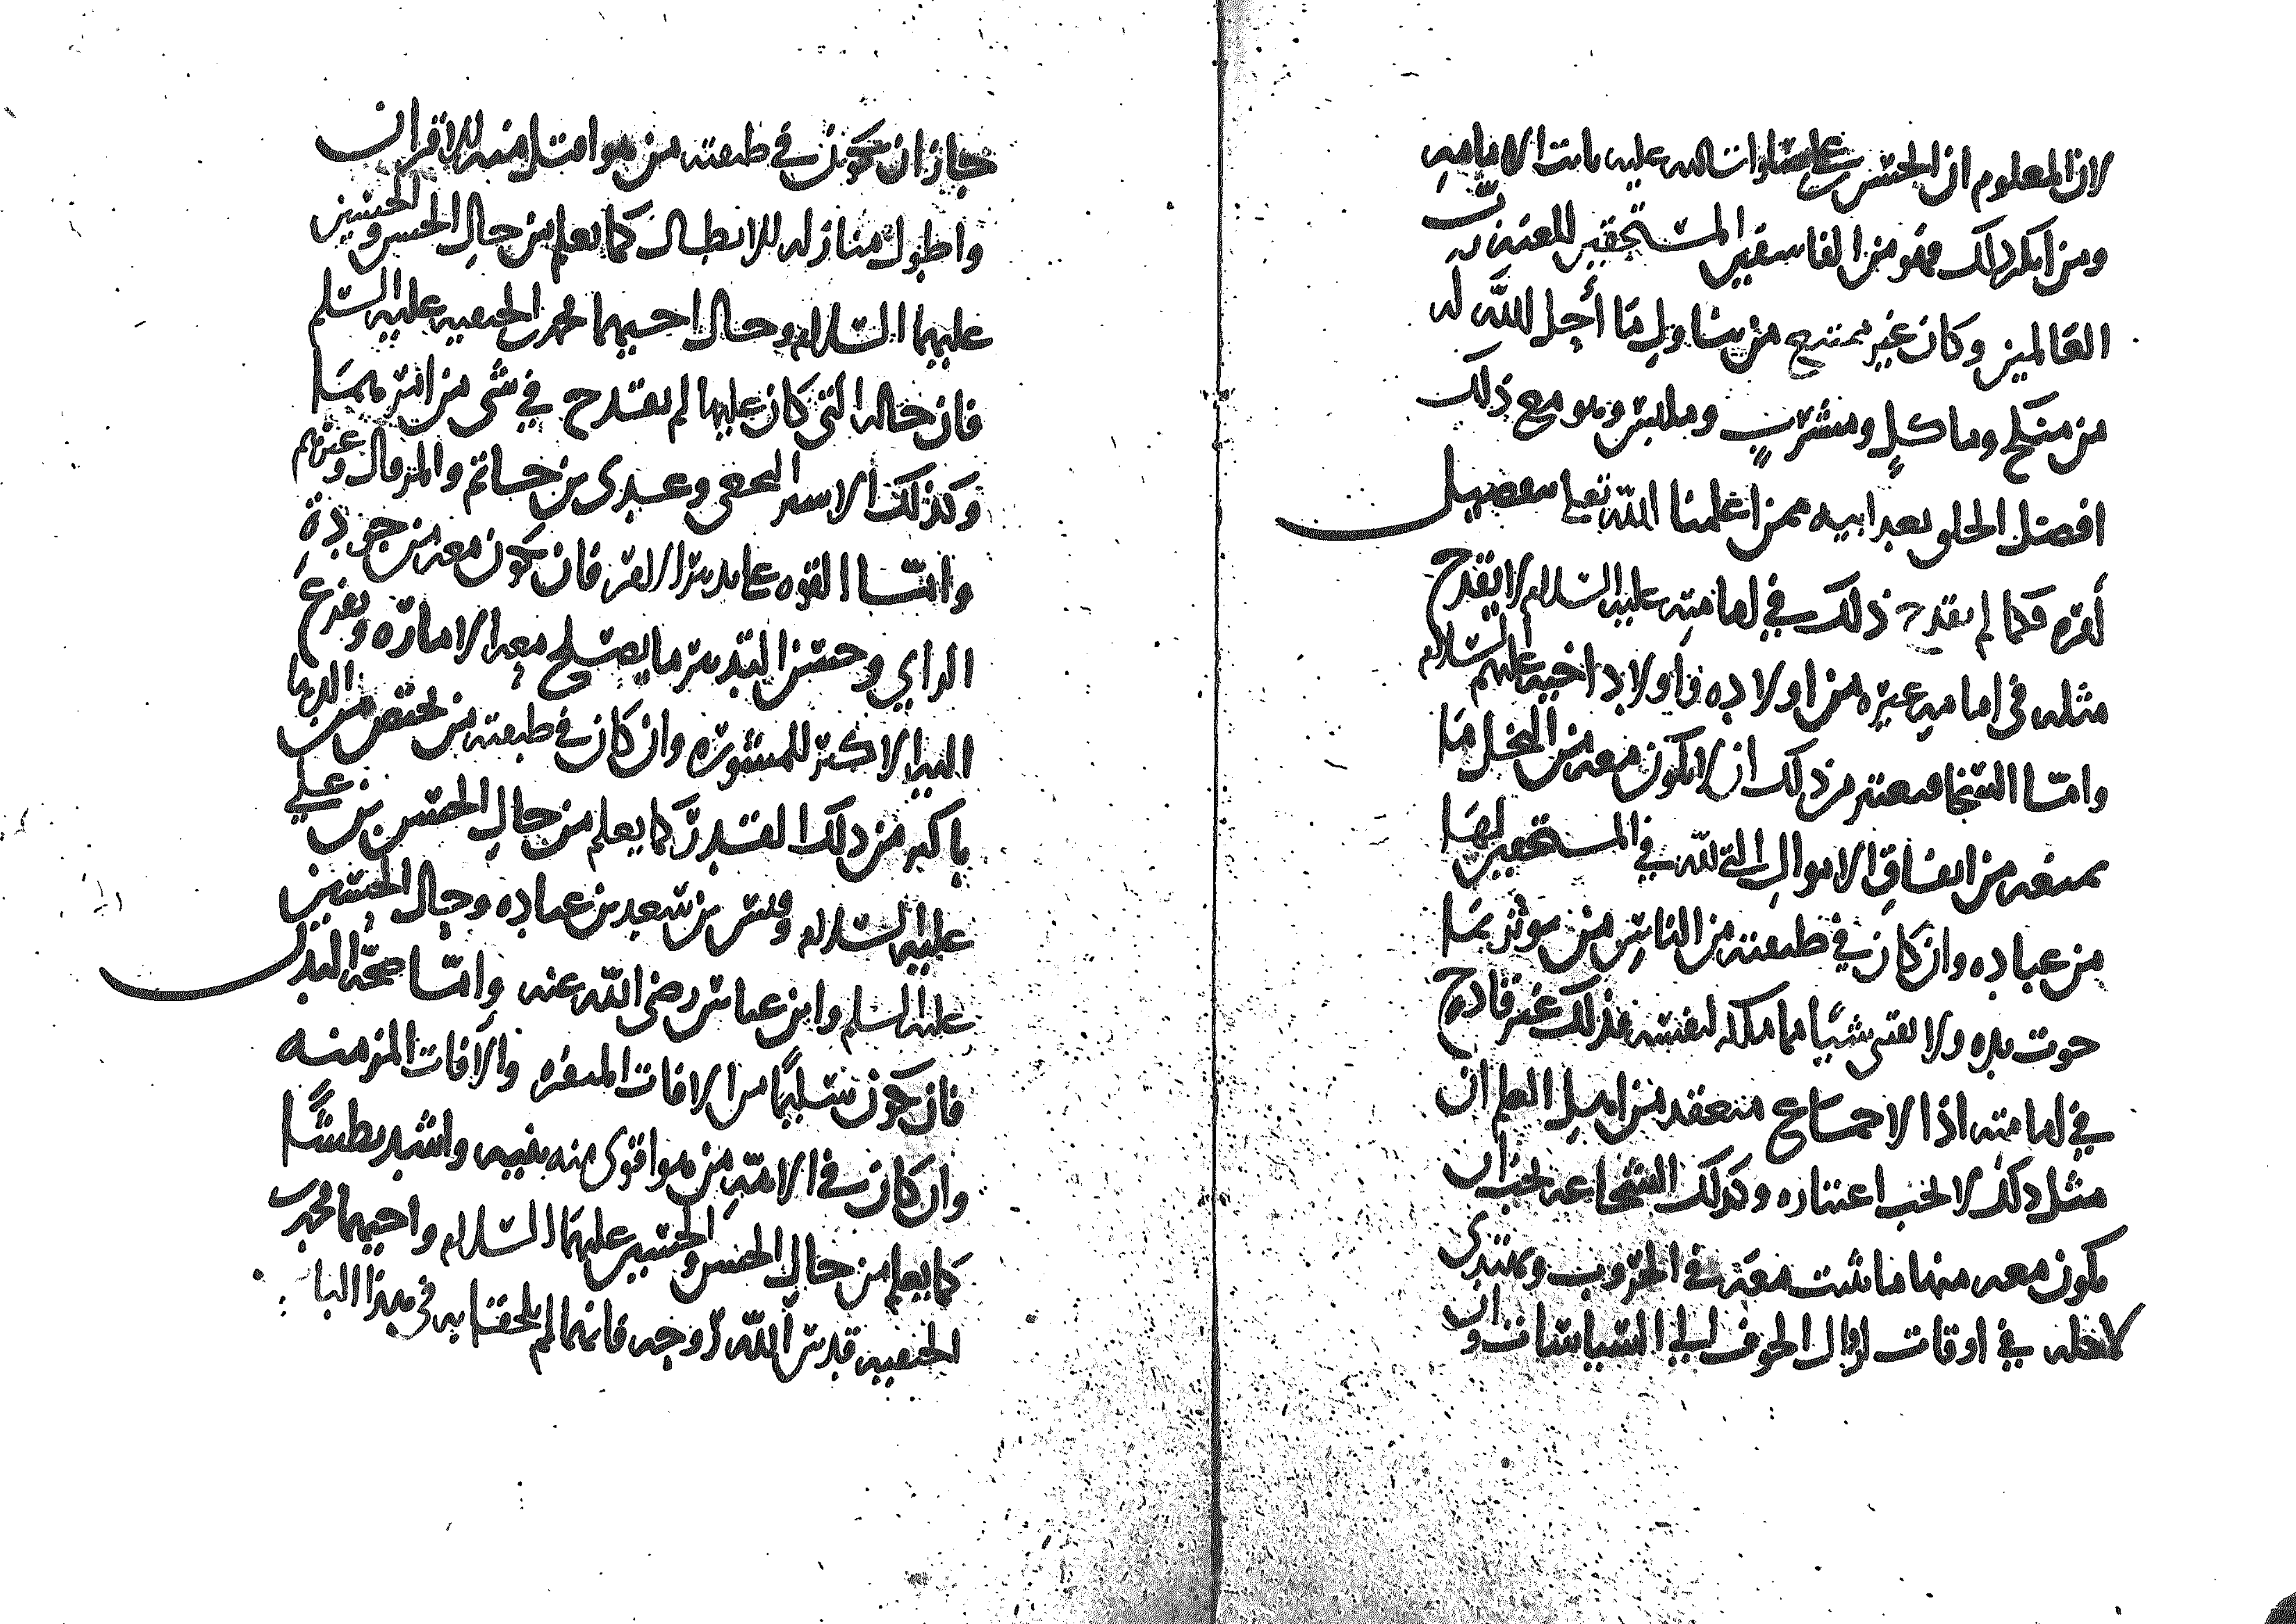 لان المعلوم ان الحسن بن علي صلوات الله عليه ثابت الامامه
ومن انكر ذلك فهو من الفاسقين المستحقين للعنه رب
العالمين وكان غير ممتنع من تناول ما أحل الله له
من منكح وماكل ومشرب وملبس وهو مع ذلك
افضل الخلق بعد ابيه ممن اعلمنا الله تعلى
فكما لم يقدح ذلك في امامته عليه السلام لا يقدح
مثله في امامه غيره من اولاده واولاد اخيه عليهم السلام
واما السخا فيعتبر من ذلك ان لا يكون معه من البخل ما
يمنعه من انفاق الاموال التي لله في المستحقين لها
من عباده وان كان في طبقته من الناس من يوثر بما
حوت يده ولا يقتني شيًا مما ملكه لنفسه فذلك غير قادح
في امامته اذ الاجماع منعقد من اهل العلم ان
مثل ذلك لا يجب اعتباره وكذلك الشجاعه يجب ان
يكون معه منها ما يثبت معه في الحروب ويهتدى
لاجله في اوقات الخوف الى السياسات وان
جاز ان يكون في طبقته من هو اقتل منه للاقران
واطول منازله للابطال كما يعلم من حال الحسن والحسين
عليهما السلام وحال اخيهما محمد بن الحنفيه عليه السلم
فان حاله التي كان عليها لم يقدح في شي من امرهما
وكذلك الاشتر النخعي وعدى بن حاتم والمرقال وغيرهم
واما القوه على تدبير الامر فان يكون معه من جودة
الراي وحسن التدبير ما يصلح معه الاماره ويفزع
اليه الاكثر للمشوره وان كان في طبقته من يختص من الدها
باكثر من ذلك القدر كما يعلم من حال الحسن بن علي
عليه السلام وقيس بن سعد بن عباده وحال الحسين
عليه السلم وابن عباس رضي الله عنه واما صحة البدن
فان يكون سليمًا من الافات المنفره والآفات المزمنه
وان كان في الامة من هو اقوى منه بنيه واشد بطشًا
كما يعلم من حال الحسن والحسين عليهما السلام واخيهما محمد بن
الحنفيه قدس الله روحه فانهما لم يلحقا به في هذا البا